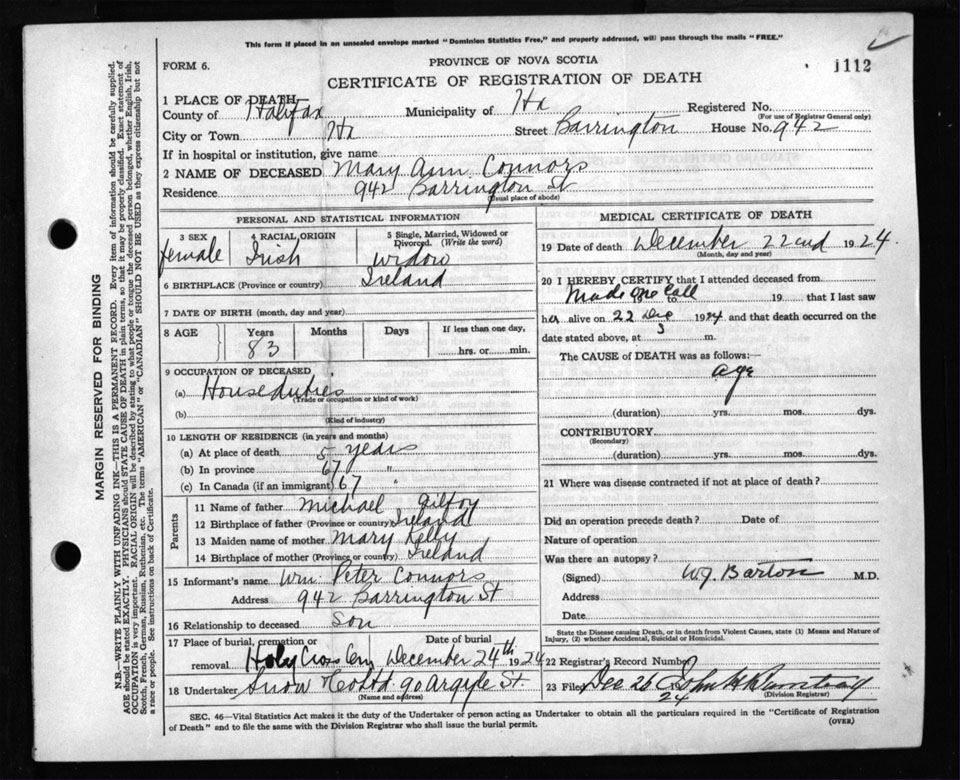 This form if placed in an unsealed envelope marked "Dominion Statistics Free," and properly addressed, will pass through the mails "FREE."
FORM 6.
PROVINCE OF NOVA SCOTIA
1112
CERTIFICATE OF REGISTRATION OF DEATH
1 PLACE OF DEATH
County of Halifax Municipality of Hx Registered No.
(For use of Registrar General only)
City or Town Hx Street Barrington House No. 942
If in hospital or institution, give name
2 NAME OF DECEASED Mary Ann Connors
Residence 942 Barrington St
(Usual place of abode)
PERSONAL AND STATISTICAL INFORMATION
3 SEX 4 RACIAL ORIGIN 5 Single, Married, Widowed or Divorced. (Write the word)
female Irish widow
6 BIRTHPLACE (Province or country) Ireland
7 DATE OF BIRTH (month, day and year)
8 AGE Years Months Days If less than one day,
83 hrs. or min.
9 OCCUPATION OF DECEASED
(a) House duties
(Trade or occupation or kind of work)
(b)
(Kind of industry)
10 LENGTH OF RESIDENCE (in years and months)
(a) At place of death 5 years
(b) In province 67 "
(c) In Canada (if an immigrant) 67 "
Parents
11 Name of father Michael Gilfoy
12 Birthplace of father (Province or country) Ireland
13 Maiden name of mother Mary Kelly
14 Birthplace of mother (Province or country) Ireland
15 Informant's name Wm. Peter Connors
Address 942 Barrington St
16 Relationship to deceased Son
17 Place of burial, cremation or Date of burial
removal Holy Cross Cem December 24th 1924
18 Undertaker Snow & Co Ltd. 90 Argyle St.
MEDICAL CERTIFICATE OF DEATH
19 Date of death December 22nd 1924.
(Month, day and year)
20 I HEREBY CERTIFY that I attended deceased from
Made one call to 19 that I last saw
her alive on 22 Dec 1924 and that death occurred on the
date stated above, at 3 m.
The CAUSE of DEATH was as follows:—
age
(duration) yrs. mos. dys.
CONTRIBUTORY
(Secondary)
(duration) yrs. mos. dys.
21 Where was disease contracted if not at place of death?
Did an operation precede death? Date of
Nature of operation
Was there an autopsy?
(Signed) W.J. Barton M.D.
Address
Date
State the Disease causing Death, or in death from Violent Causes, state (1) Means and Nature of
Injury, (2) whether Accidental, Suicidal or Homicidal.
22 Registrar's Record Number
23 Filed Dec 26 John
24 (Division Registrar)
SEC. 46—Vital Statistics Act makes it the duty of the Undertaker or person acting as Undertaker to obtain all the particulars required in the "Certificate of Registration
of Death" and to file the same with the Division Registrar who shall issue the burial permit.
(OVER)
MARGIN RESERVED FOR BINDING
N.B.—WRITE PLAINLY WITH UNFADING INK—THIS IS A PERMANENT RECORD. Every item of information should be carefully supplied.
AGE should be stated EXACTLY. PHYSICIANS should STATE CAUSE OF DEATH in plain terms, so that it may be properly classified. Exact statement of
OCCUPATION is very important. RACIAL ORIGIN will be described by stating to what people or tongue the deceased person belonged, whether English, Irish,
Scotch, French, German, Russian, Ruthenian, etc. The terms "AMERICAN" or "CANADIAN" SHOULD NOT BE USED as they express citizenship but not
a race or people. See instructions on back of Certificate.